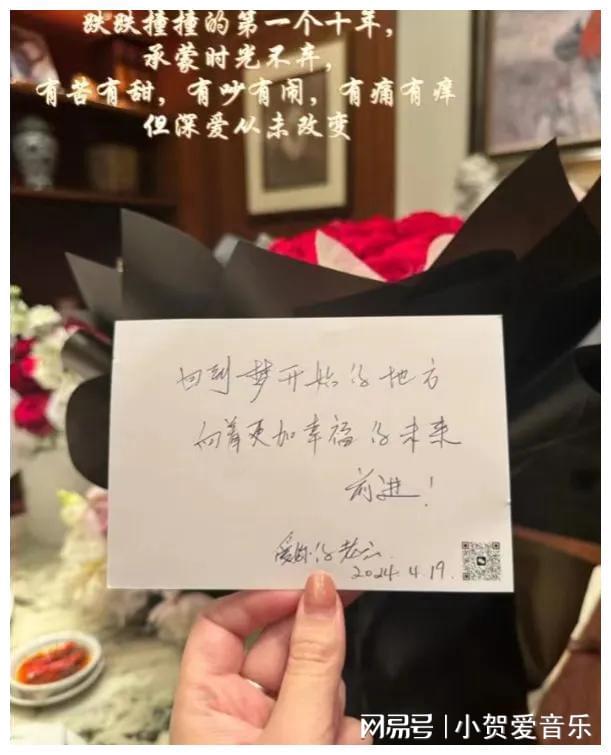 跌跌撞撞的第一个十年，
承蒙时光不弃，
有苦有甜，有吵有闹，有痛有痒
但深爱从未改变
回到梦开始的地方
向着更加幸福的未来
前进！
2024.4.19.
网易号 | 小贺爱音乐